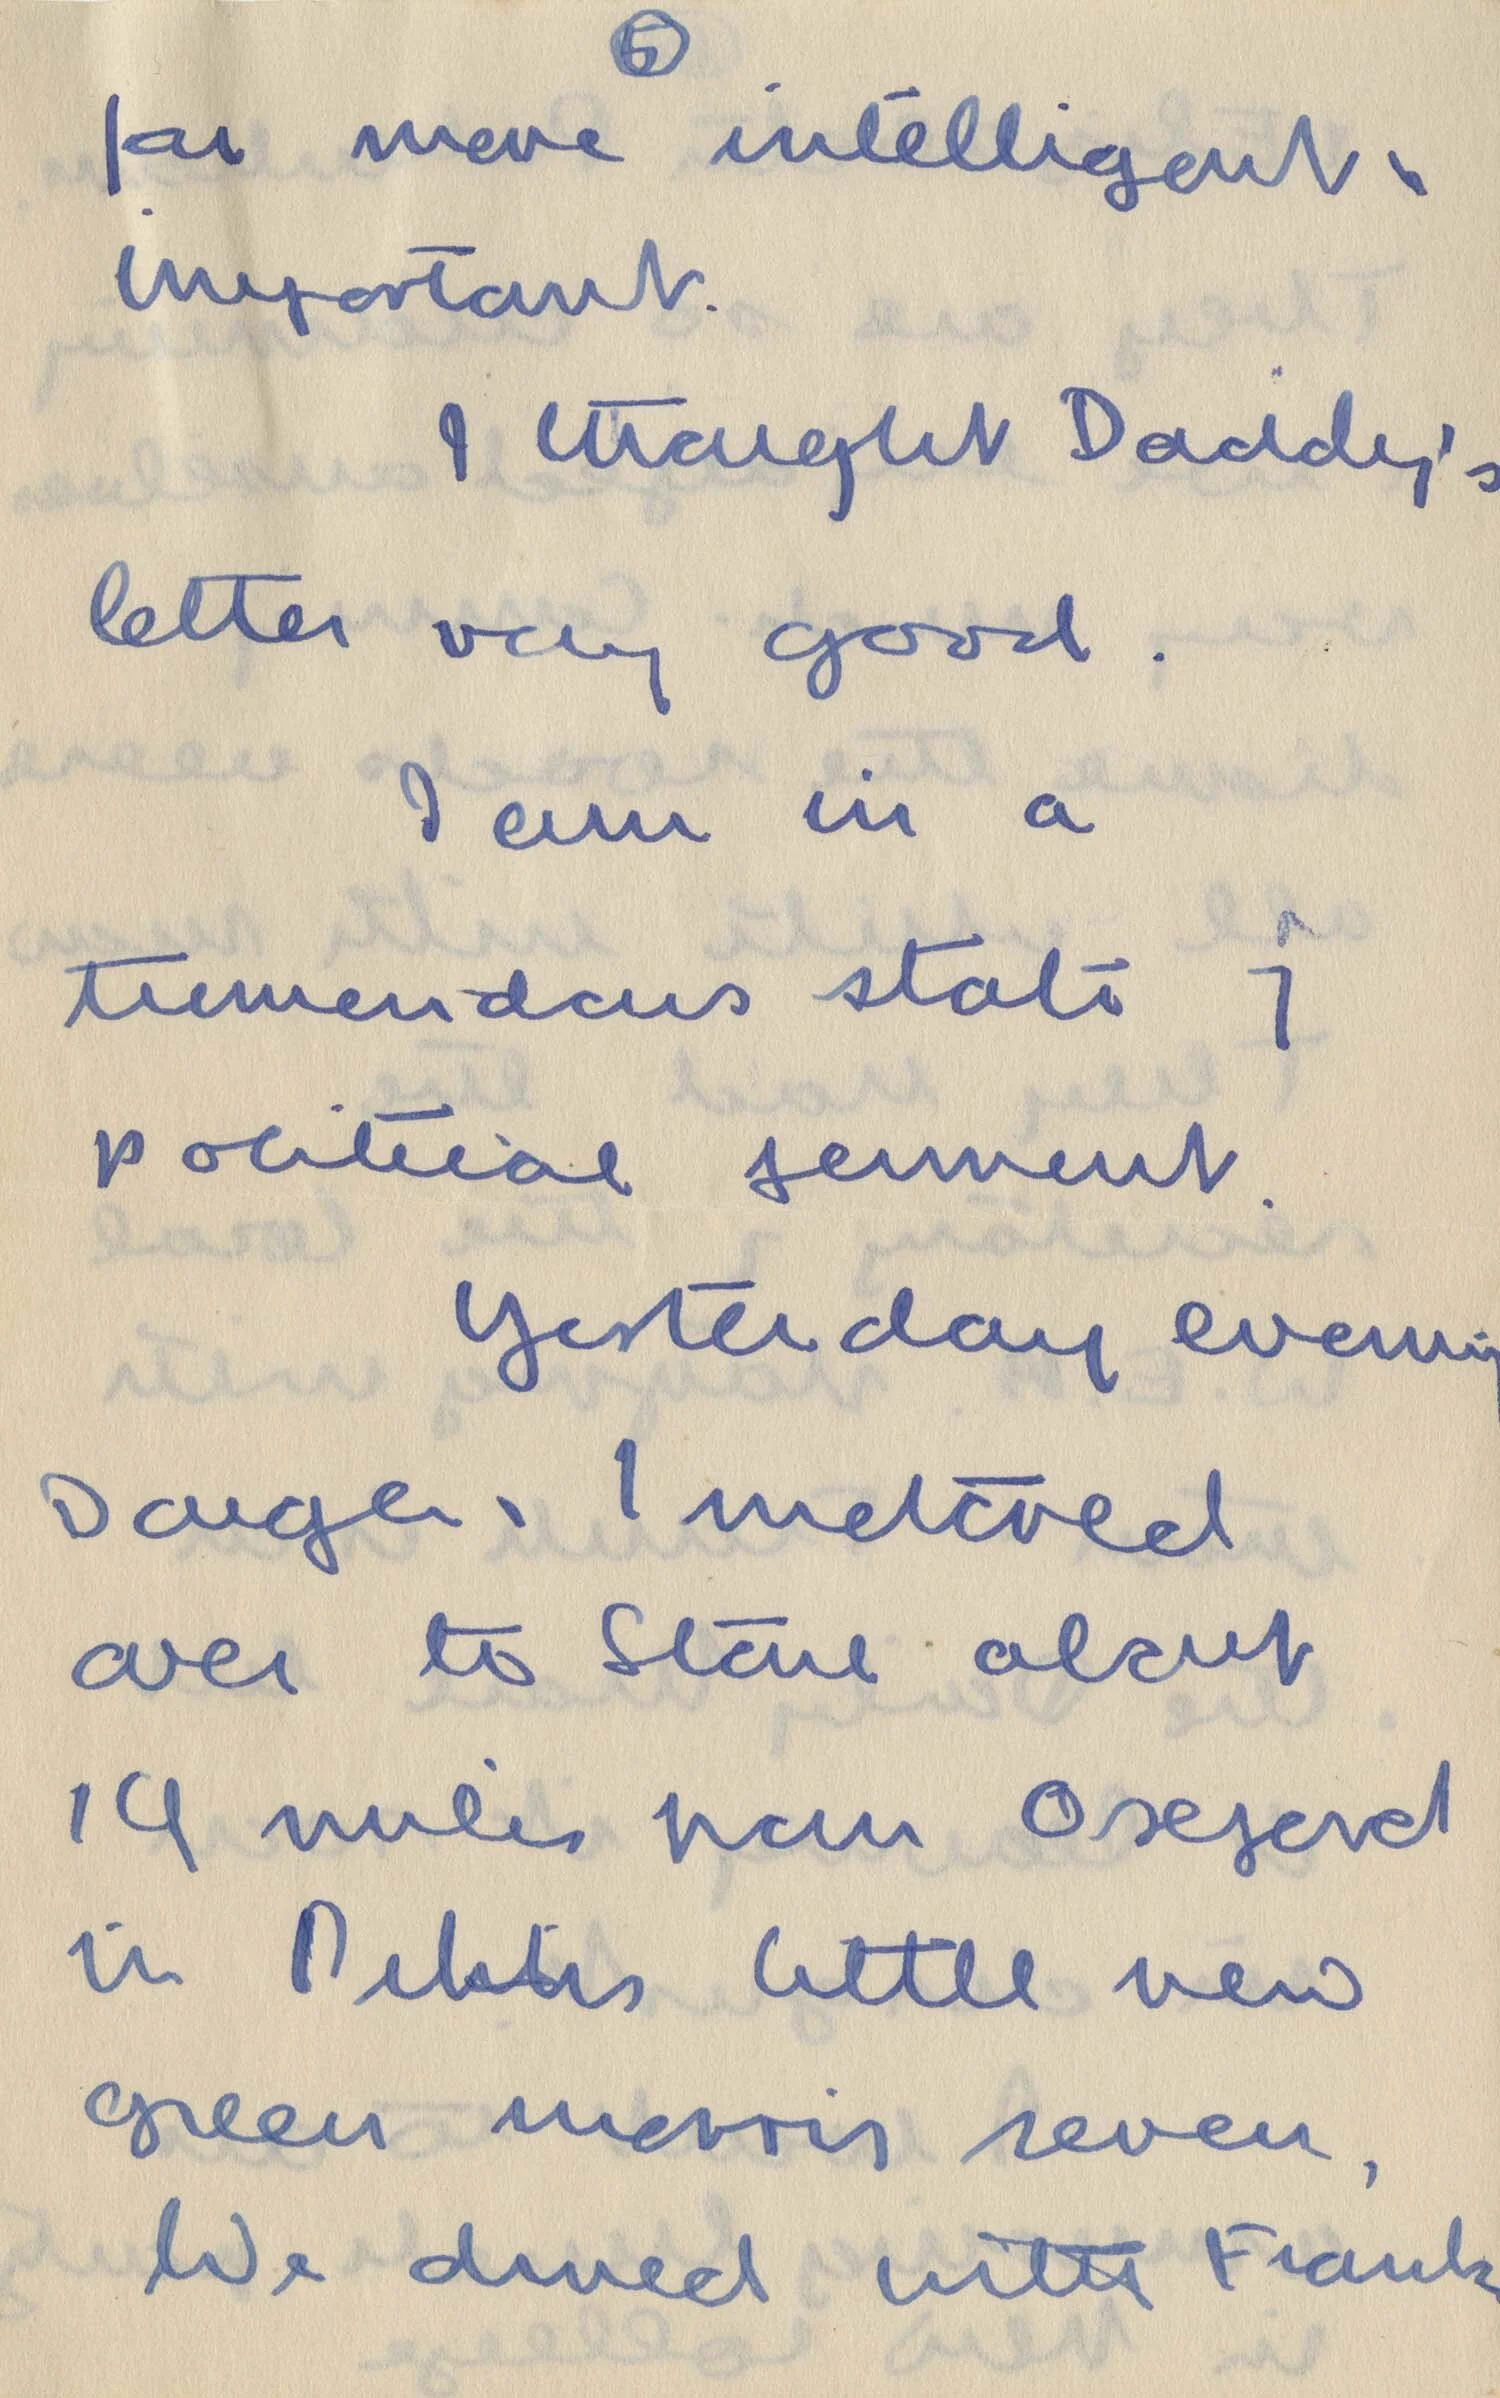 5
far more intelligent &
important.
I thought Daddy's
letter very good.
I am in a
tremendous state of
political ferment.
Yesterday evening
& I motored
over to Stone about
14 miles from Oxford
in little new
green morris seven,
We dined with Frank